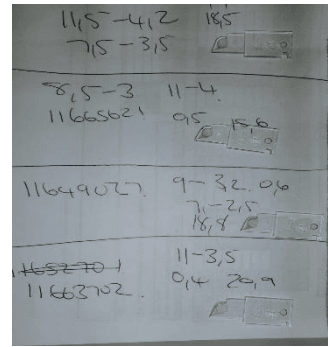 11,5-4,2 18,5
7,5-3,5
8,5-3 11-4
11665621 0,5 15,6
11649027 9-3,2 0,6
7,-2,5
18,8
11652701 11-3,5
11663702 0,4 20,9